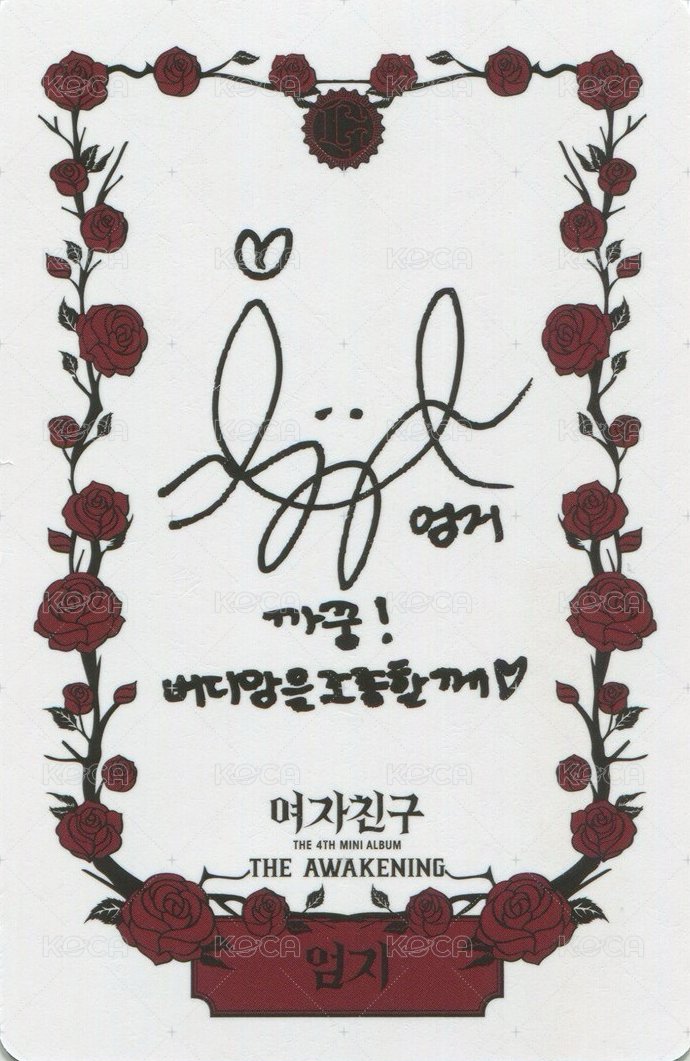 엄지
까꿍!
버디맘을조종할께♡
여자친구
THE 4TH MINI ALBUM
THE AWAKENING
엄지
KOCA